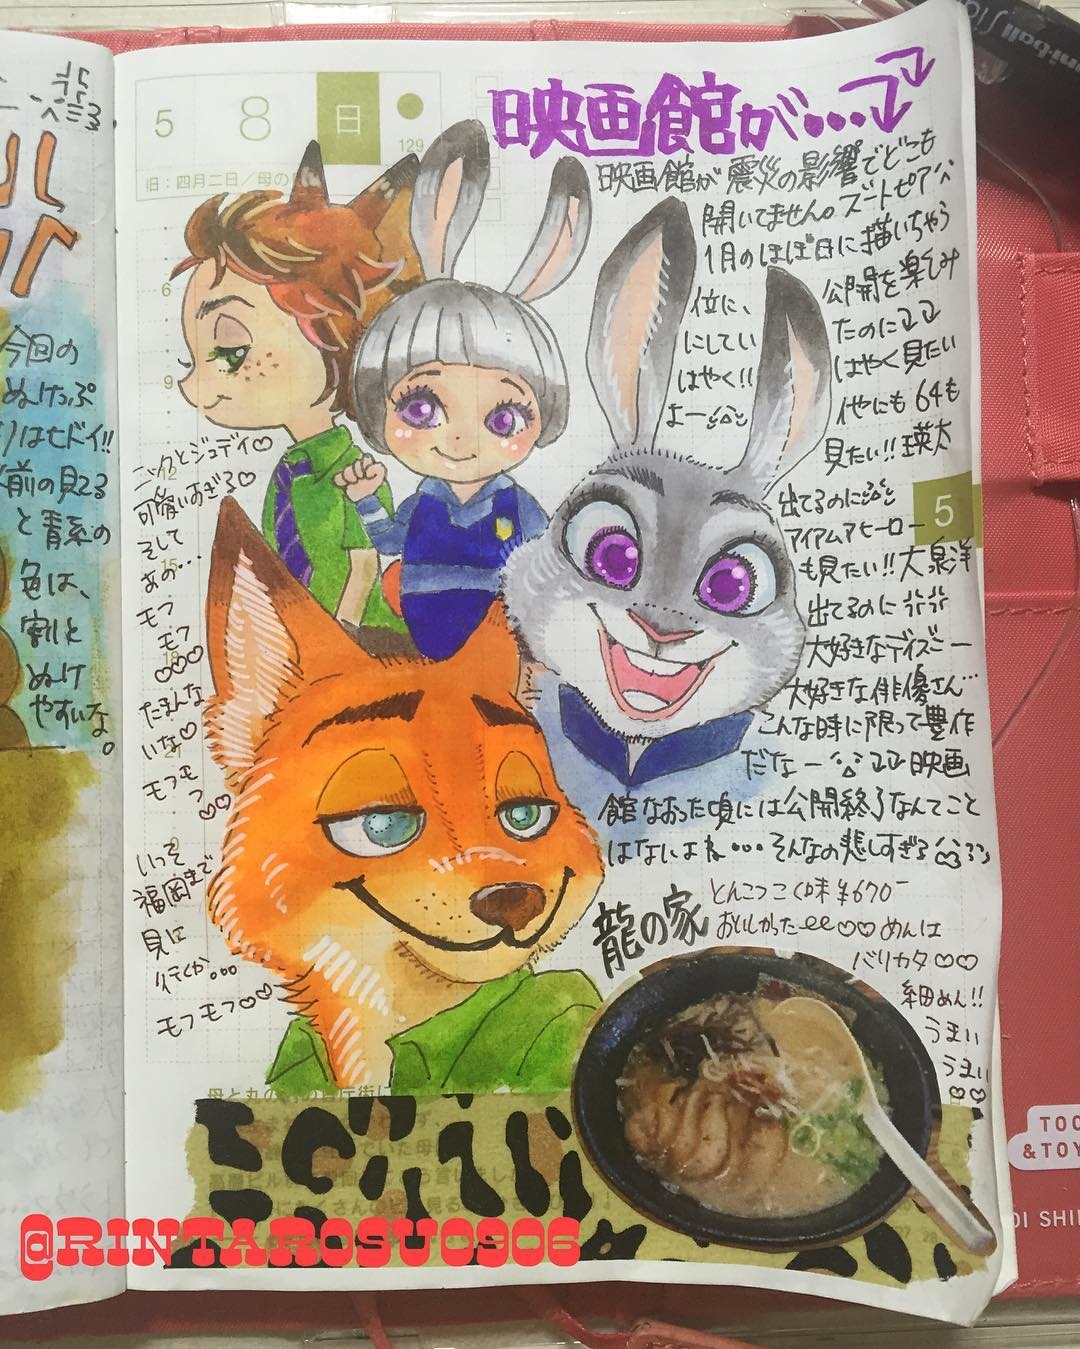 5 8 日
129
旧：四月二日／母の
映画館が…
映画館が震災の影響でどこも
開いてません。ズートピア
1月のほぼ日に描いちゃう
位に、公開を楽しみ
にしていたのに
はやく!! はやく見たい
よー 他にも64も
見たい!! 瑛太
出てるのに
アイアムアヒーロー
も見たい!! 大泉洋
出てるのに
大好きなディズニー
大好きな俳優さん…
こんな時に限って豊作
だなー 映画
館なおった頃には公開終了なんてこと
はないよね…そんなの悲しすぎる
ニックとジュディ♡
可愛いすぎる♡
そして
あの…
モフ
モフ
♡♡♡
たまんな
いな♡
モフモ
フ
♡♡
いっそ
福岡まで
見に
行くか…
モフモフ♡♡
6
9
12
15
18
5
龍の家
とんこつこく味￥670-
おいしかったee♡♡めんは
バリカタ♡♡
細めん!!
うまい
うまい
♡♡
今回の
ぬけっぷ
りはヒドイ!!
前の見てる
と青系の
色は、
割と
ぬけ
やすいな。
TOO
&TOY
OI SHI
uni-ball Sig
@RINTAROSU0906